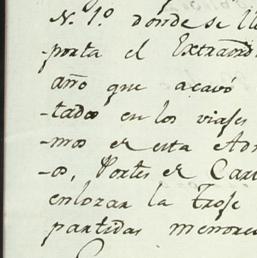 N. 1.º donde se lle
-porta el Extraord
año que acavó
-tados en los viajes
-mos er esta Adm
-os, Portes er Cart
enlozar la Trose
partidas menores